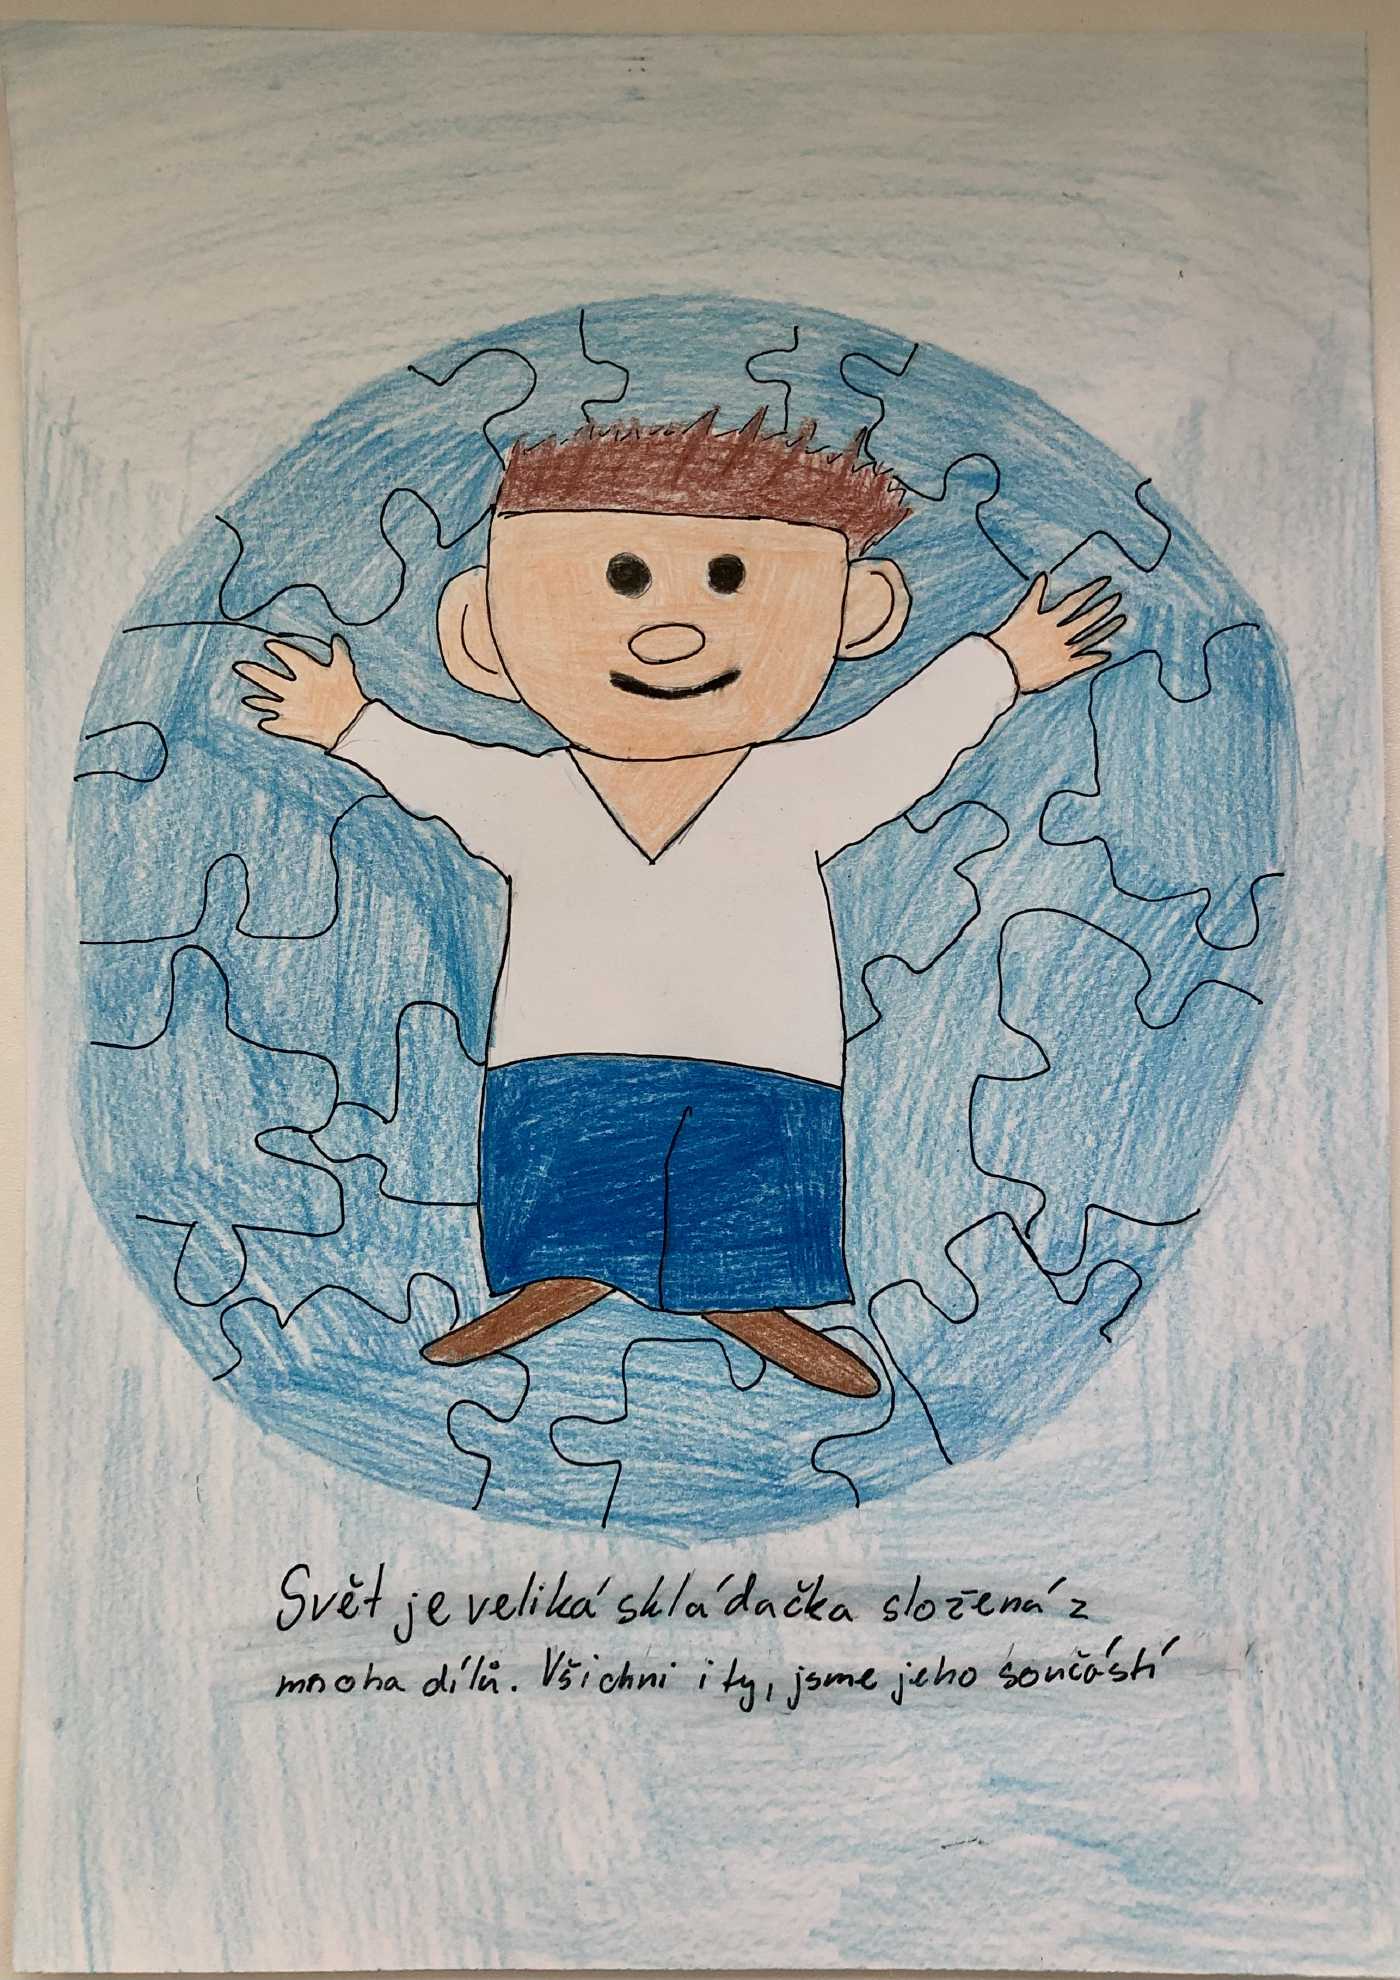 Svět je veliká skládačka složená z
mnoha dílů. Všichni i ty, jsme jeho součástí